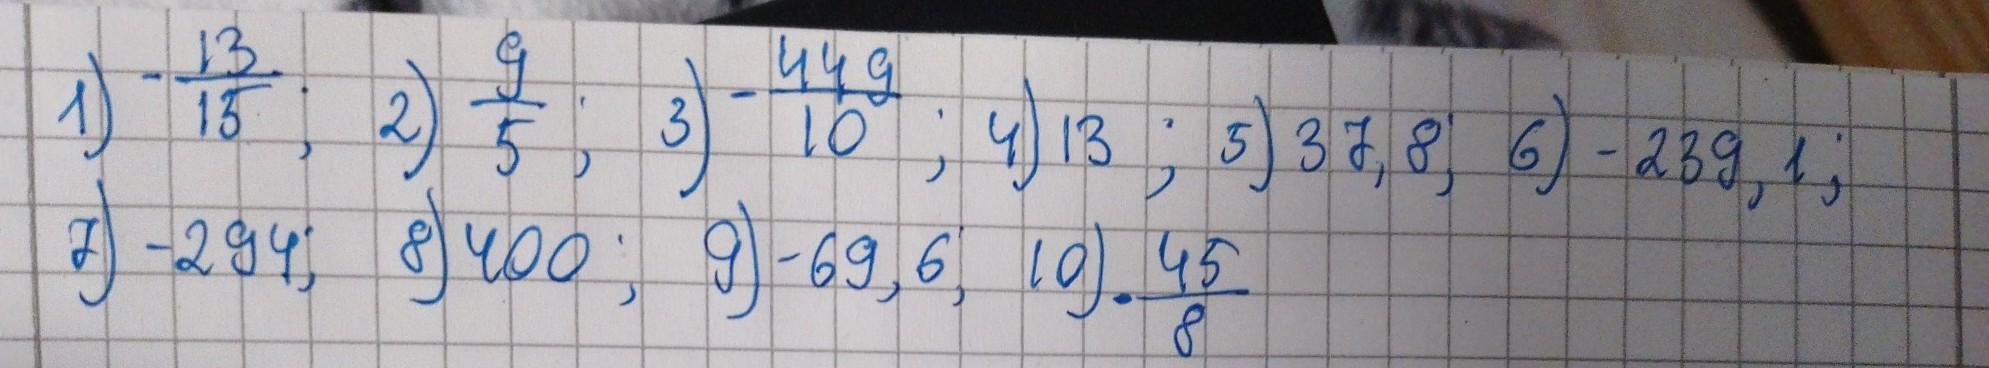 1) -13/15; 2) 9/5; 3) -449/10; 4) 13; 5) 37,8; 6) -239,1;
7) -294; 8) 400; 9) -69,6; 10) -45/8